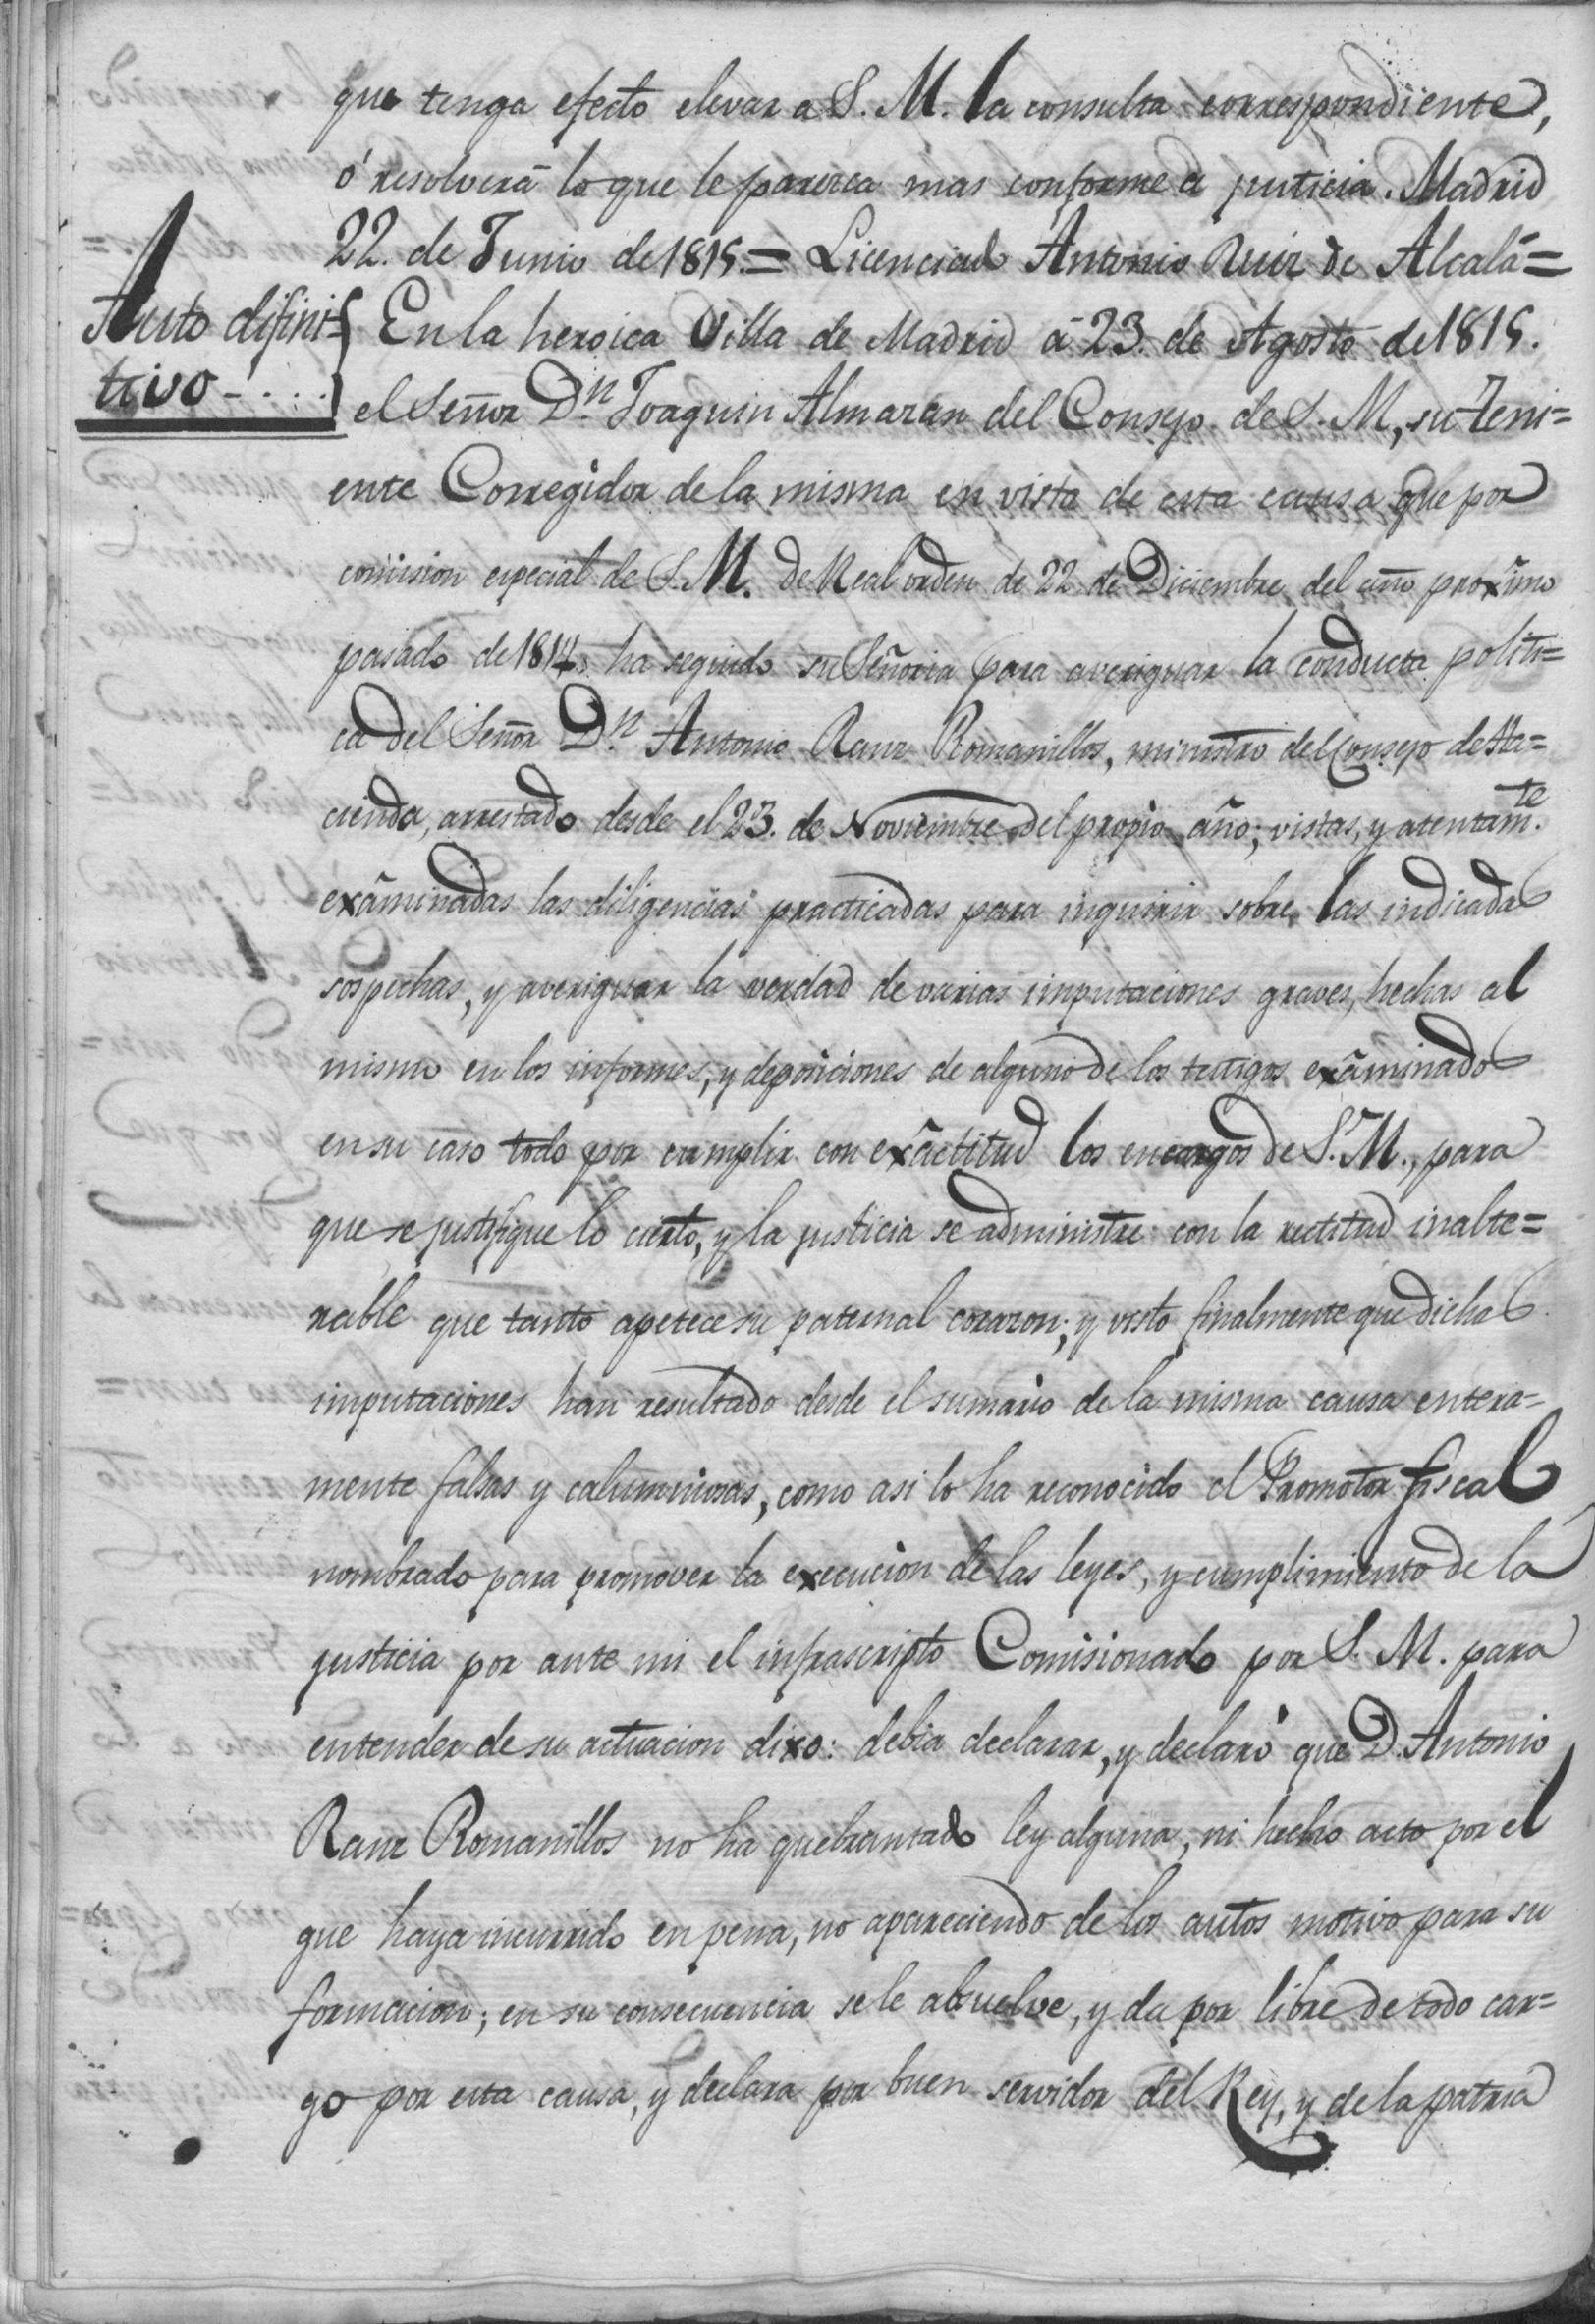 que tenga efecto elevar a S. M. la consulta correspondiente,
ó resolverá lo que le parezca mas conforme a justicia. Madrid
22. de Junio de 1815.= Licenciado Antonio Ruiz de Alcalá=
Auto difini=
tivo-....
En la heroica Villa de Madrid á 23. de Agosto de 1815.
el Señor Dn. Joaquin Almazan del Consejo de S. M, su Teni=
ente Corregidor de la misma en vista de esta causa que por
comision especial de S. M. de Real orden de 22 de Diciembre del año proxîmo
pasado de 1814, ha seguido su Señoria para averiguar la conducta politi=
ca del Señor Dn. Antonio Ranz Romanillos, ministro del Consejo de Ha=
cienda, arrestado desde el 23. de Noviembre del propio año; vistas, y atentamte.
exâminadas las diligencias practicadas para inquirir sobre las indicadas
sospechas, y averiguar la verdad de varias imputaciones graves, hechas al
mismo en los informes, y deposiciones de alguno de los testigos exâminados
en su caso todo por cumplir con exâctitud los encargos de S. M., para
que se justifique lo cierto, y la justicia se administre con la rectitud inalte=
rable que tanto apetece su paternal corazon; y visto finalmente que dichas
imputaciones han resultado desde el sumario de la misma causa entera=
mente falsas y calumniosas, como asi lo ha reconocido el Promotor fiscal
nombrado para promover la execucion de las leyes, y cumplimiento de la
justicia por ante mi el infrascripto Comisionado por S. M. para
entender de su actuacion dixo: debia declarar, y declaró que D. Antonio
Ranz Romanillos no ha quebrantado ley alguna, ni hecho acto por el
que haya incurrido en pena, no apareciendo de los autos motivo para su
formacion; en su consecuencia se le absuelve, y da por libre de todo car=
go por esta causa, y declara por buen servidor del Rey, y de la patria